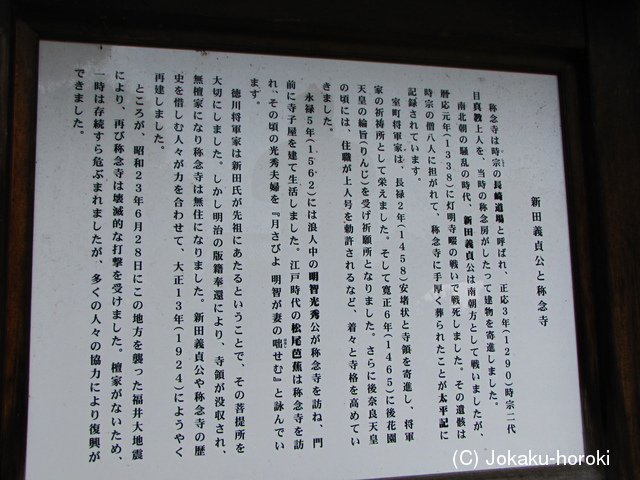 新田義貞公と称念寺
称念寺は時宗の長崎道場と呼ばれ、正応3年(1290)時宗二代
目真教上人を、当時の称念房がしたって建物を寄進しました。
南北朝の騒乱の時代、新田義貞公は南朝方として戦いましたが、
暦応元年(1338)に灯明寺畷の戦いで戦死しました。その遺骸は
時宗の僧八人に担がれて、称念寺に手厚く葬られたことが太平記に
記録されています。
室町将軍家は、長禄2年(1458)安堵状と寺領を寄進し、将軍
家の祈祷所として栄えました。そして寛正6年(1465)に後花園
天皇の綸旨(りんじ)を受け祈願所となりました。さらに後奈良天皇
の頃には、住職が上人号を勅許されるなど、着々と寺格を高めてい
きました。
永禄5年(1562)には浪人中の明智光秀公が称念寺を訪ね、門
前に寺子屋を建て生活しました。江戸時代の松尾芭蕉は称念寺を訪
れ、その頃の光秀夫婦を『月さびよ 明智が妻の咄せむ』と詠んでい
ます。
徳川将軍家は新田氏が先祖にあたるということで、その菩提所を
大切にしました。しかし明治の版籍奉還により、寺領が没収され、
無檀家になり称念寺は無住になりました。新田義貞公や称念寺の歴
史を惜しむ人々が力を合わせて、大正13年(1924)にようやく
再建しました。
ところが、昭和23年6月28日にこの地方を襲った福井大地震
により、再び称念寺は壊滅的な打撃を受けました。檀家がないため、
一時は存続すら危ぶまれましたが、多くの人々の協力により復興が
できました。
(C) Jokaku-horoki